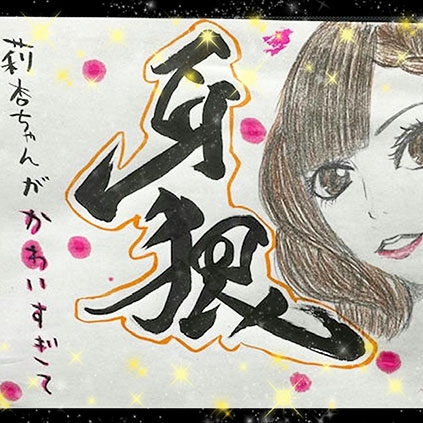 牙狼
莉杏ちゃんがかわいすぎて